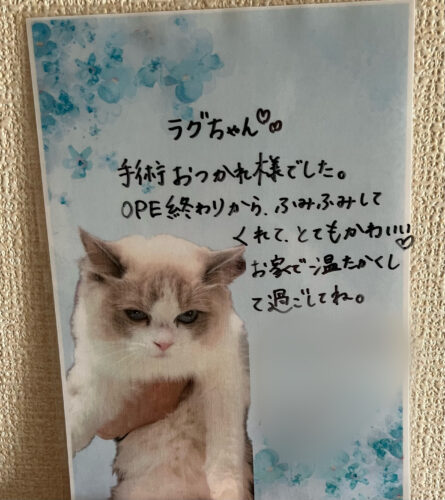 ラグちゃん♡♡
手術おつかれ様でした。
OPE終わりから、ふみふみして
くれて、とてもかわいい♡
お家で温たかくし
て過ごしてね。